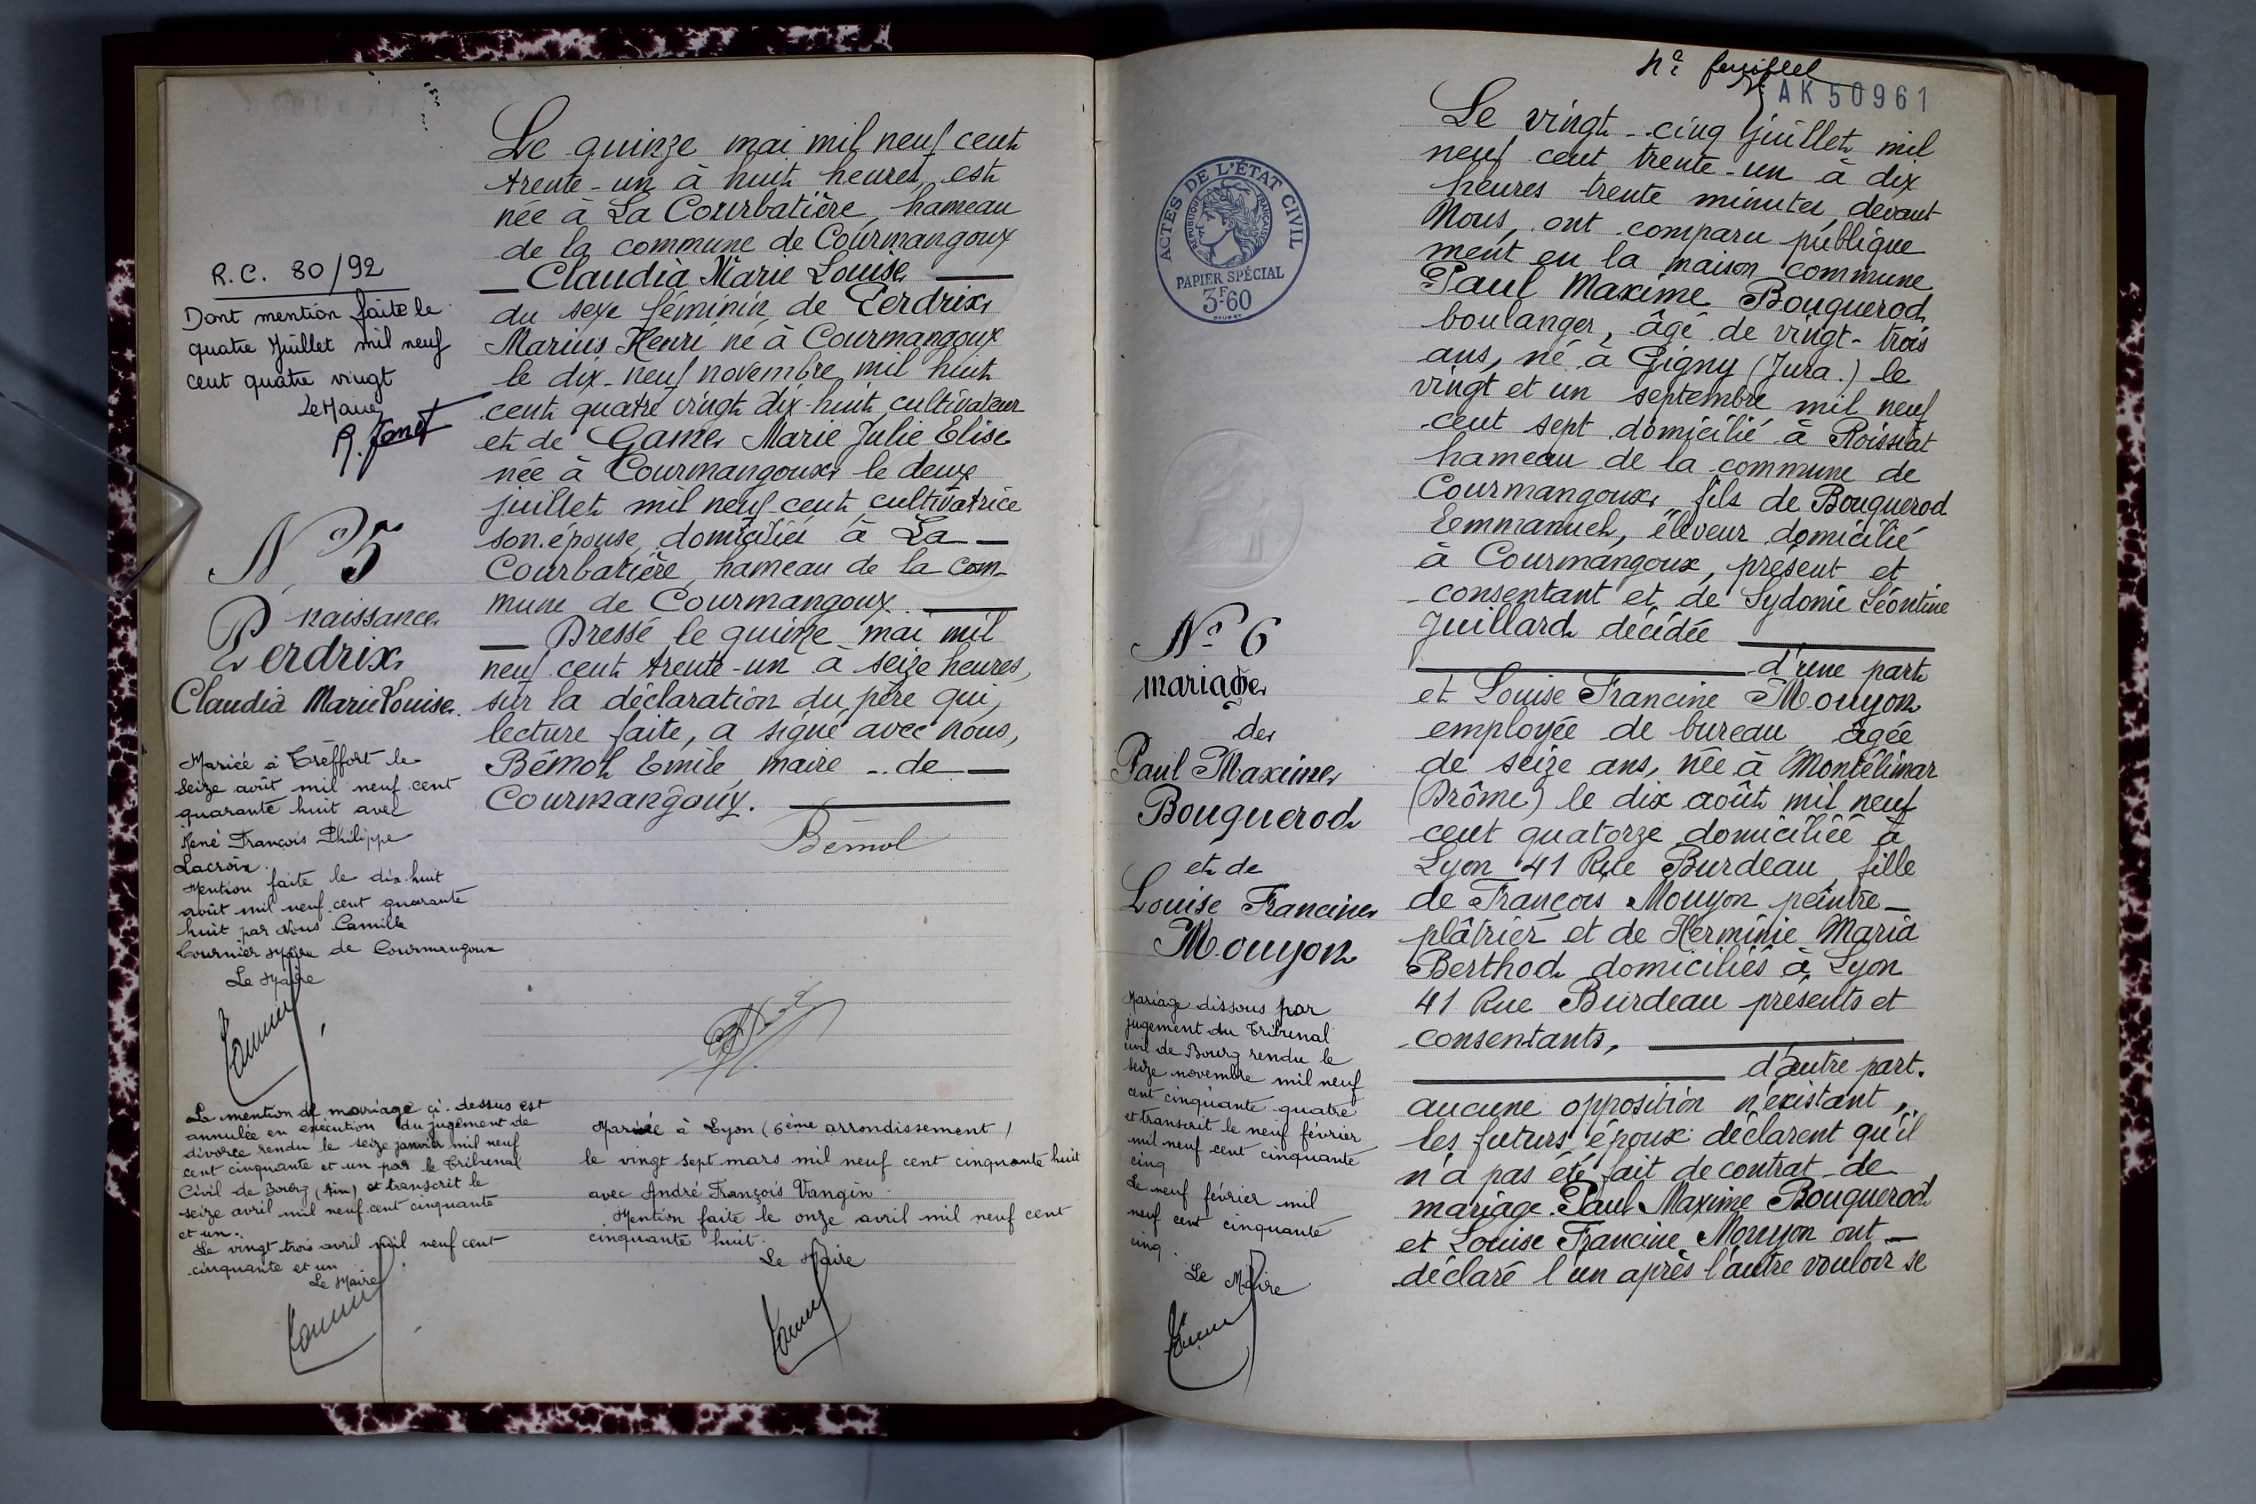 R.C. 80/92
Dont mention faite le
quatre Juillet mil neuf
cent quatre vingt
Le Maire
N° 5
naissance
Perdrix
Claudia Marie Louise.
Mariée à Treffort le
seize août mil neuf cent
quarante huit avec
René François Philippe
Lacroix.
Mention faite le dix-huit
août mil neuf cent quarante
huit par Nous Camille
Tournier Maire de Courmangoux
Le Maire
La mention de mariage ci-dessus est
annulée en exécution du jugement de
divorce rendu le seize janvier mil neuf
cent cinquante et un par le Tribunal
Civil de Bourg (Ain) et transcrit le
seize avril mil neuf cent cinquante
et un.
Le vingt trois avril mil neuf cent
cinquante et un
Le Maire
Le quinze mai mil neuf cent
trente-un à huit heures, est
née à La Courbatière, hameau
de la commune de Courmangoux
Claudia Marie Louise
du sexe féminin, de Perdrix
Marius Henri né à Courmangoux
le dix-neuf novembre mil huit
cent quatre vingt dix-huit cultivateur
et de Game Marie Julie Elise
née à Courmangoux le deux
juillet mil neuf cent cultivatrice
son épouse, domiciliés à La
Courbatière, hameau de la com-
mune de Courmangoux.
Dressé le quinze mai mil
neuf cent trente-un à seize heures,
sur la déclaration du père qui,
lecture faite, a signé avec nous,
Bémol Emile, maire de
Courmangoux.
Bémol
Mariée à Lyon (6ème arrondissement)
le vingt sept mars mil neuf cent cinquante huit
avec André François Vangin
Mention faite le onze avril mil neuf cent
cinquante huit.
Le Maire
feuillet
AK50961
ACTES DE L'ÉTAT CIVIL
RÉPUBLIQUE FRANÇAISE
PAPIER SPÉCIAL
3F60
N° 6
mariage
de
Paul Maxime
Bouquerod
et de
Louise Francine
Mouyon
Mariage dissous par
jugement du Tribunal
civil de Bourg rendu le
seize novembre mil neuf
cent cinquante quatre
et transcrit le neuf février
mil neuf cent cinquante
cinq
Le neuf février mil
neuf cent cinquante
cinq
Le Maire
Le vingt-cinq Juillet mil
neuf cent trente-un à dix
heures trente minutes, devant
Nous, ont comparu publique
ment en la maison commune
Paul Maxime Bouquerod
boulanger, âgé de vingt-trois
ans, né à Gigny (Jura.) le
vingt et un septembre mil neuf
cent sept domicilié à Roissiat
hameau de la commune de
Courmangoux, fils de Bouquerod
Emmanuel, éleveur domicilié
à Courmangoux, présent et
consentant et de Sydonie Léontine
Juillard décédée
d'une part
et Louise Francine Mouyon
employée de bureau âgée
de seize ans, née à Montélimar
(Drôme) le dix août mil neuf
cent quatorze domiciliée à
Lyon 41 Rue Burdeau, fille
de François Mouyon peintre-
plâtrier et de Herminie Maria
Berthod domiciliés à Lyon
41 Rue Burdeau présents et
consentants,
d'autre part.
aucune opposition n'existant,
les futurs époux déclarent qu'il
n'a pas été fait de contrat de
mariage. Paul Maxime Bouquerod
et Louise Francine Mouyon ont
déclaré l'un après l'autre vouloir se